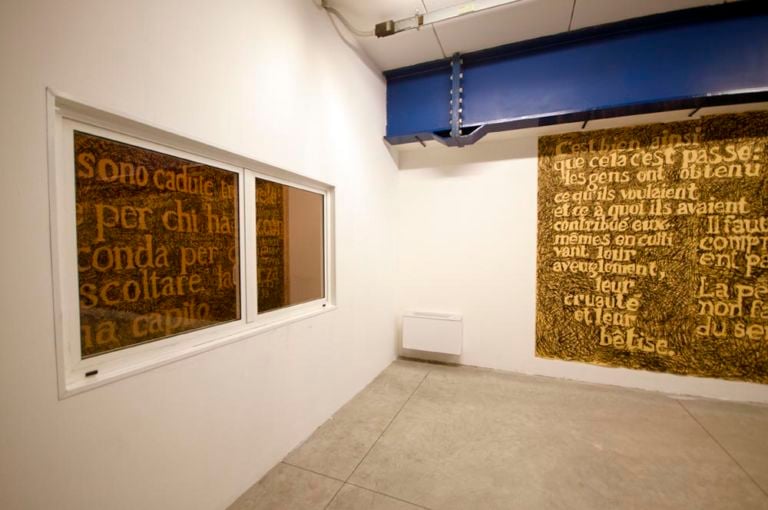 sono cadute,
e per chi ha
conda per
scoltare
ha capito
C'est bien ainsi
que cela c'est passé:
les gens ont obtenu
ce qu'ils voulaient
et ce à quoi ils avaient
contribué eux-
mêmes en culti
vant leur
aveuglement,
leur
cruauté
et leur
bêtise.
Il faut
compr
ent pa
La pe
non fa
du ser